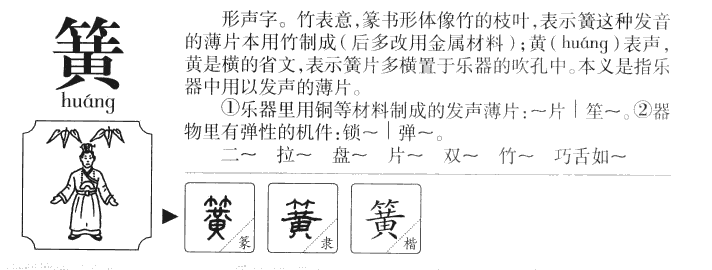 簧
huáng
形声字。竹表意,篆书形体像竹的枝叶,表示簧这种发音
的薄片本用竹制成(后多改用金属材料);黄(huáng)表声,
黄是横的省文,表示簧片多横置于乐器的吹孔中。本义是指乐
器中用以发声的薄片。
①乐器里用铜等材料制成的发声薄片:~片|笙~。②器
物里有弹性的机件:锁~|弹~。
二~ 拉~ 盘~ 片~ 双~ 竹~ 巧舌如~
簧 篆 簧 隶 簧 楷